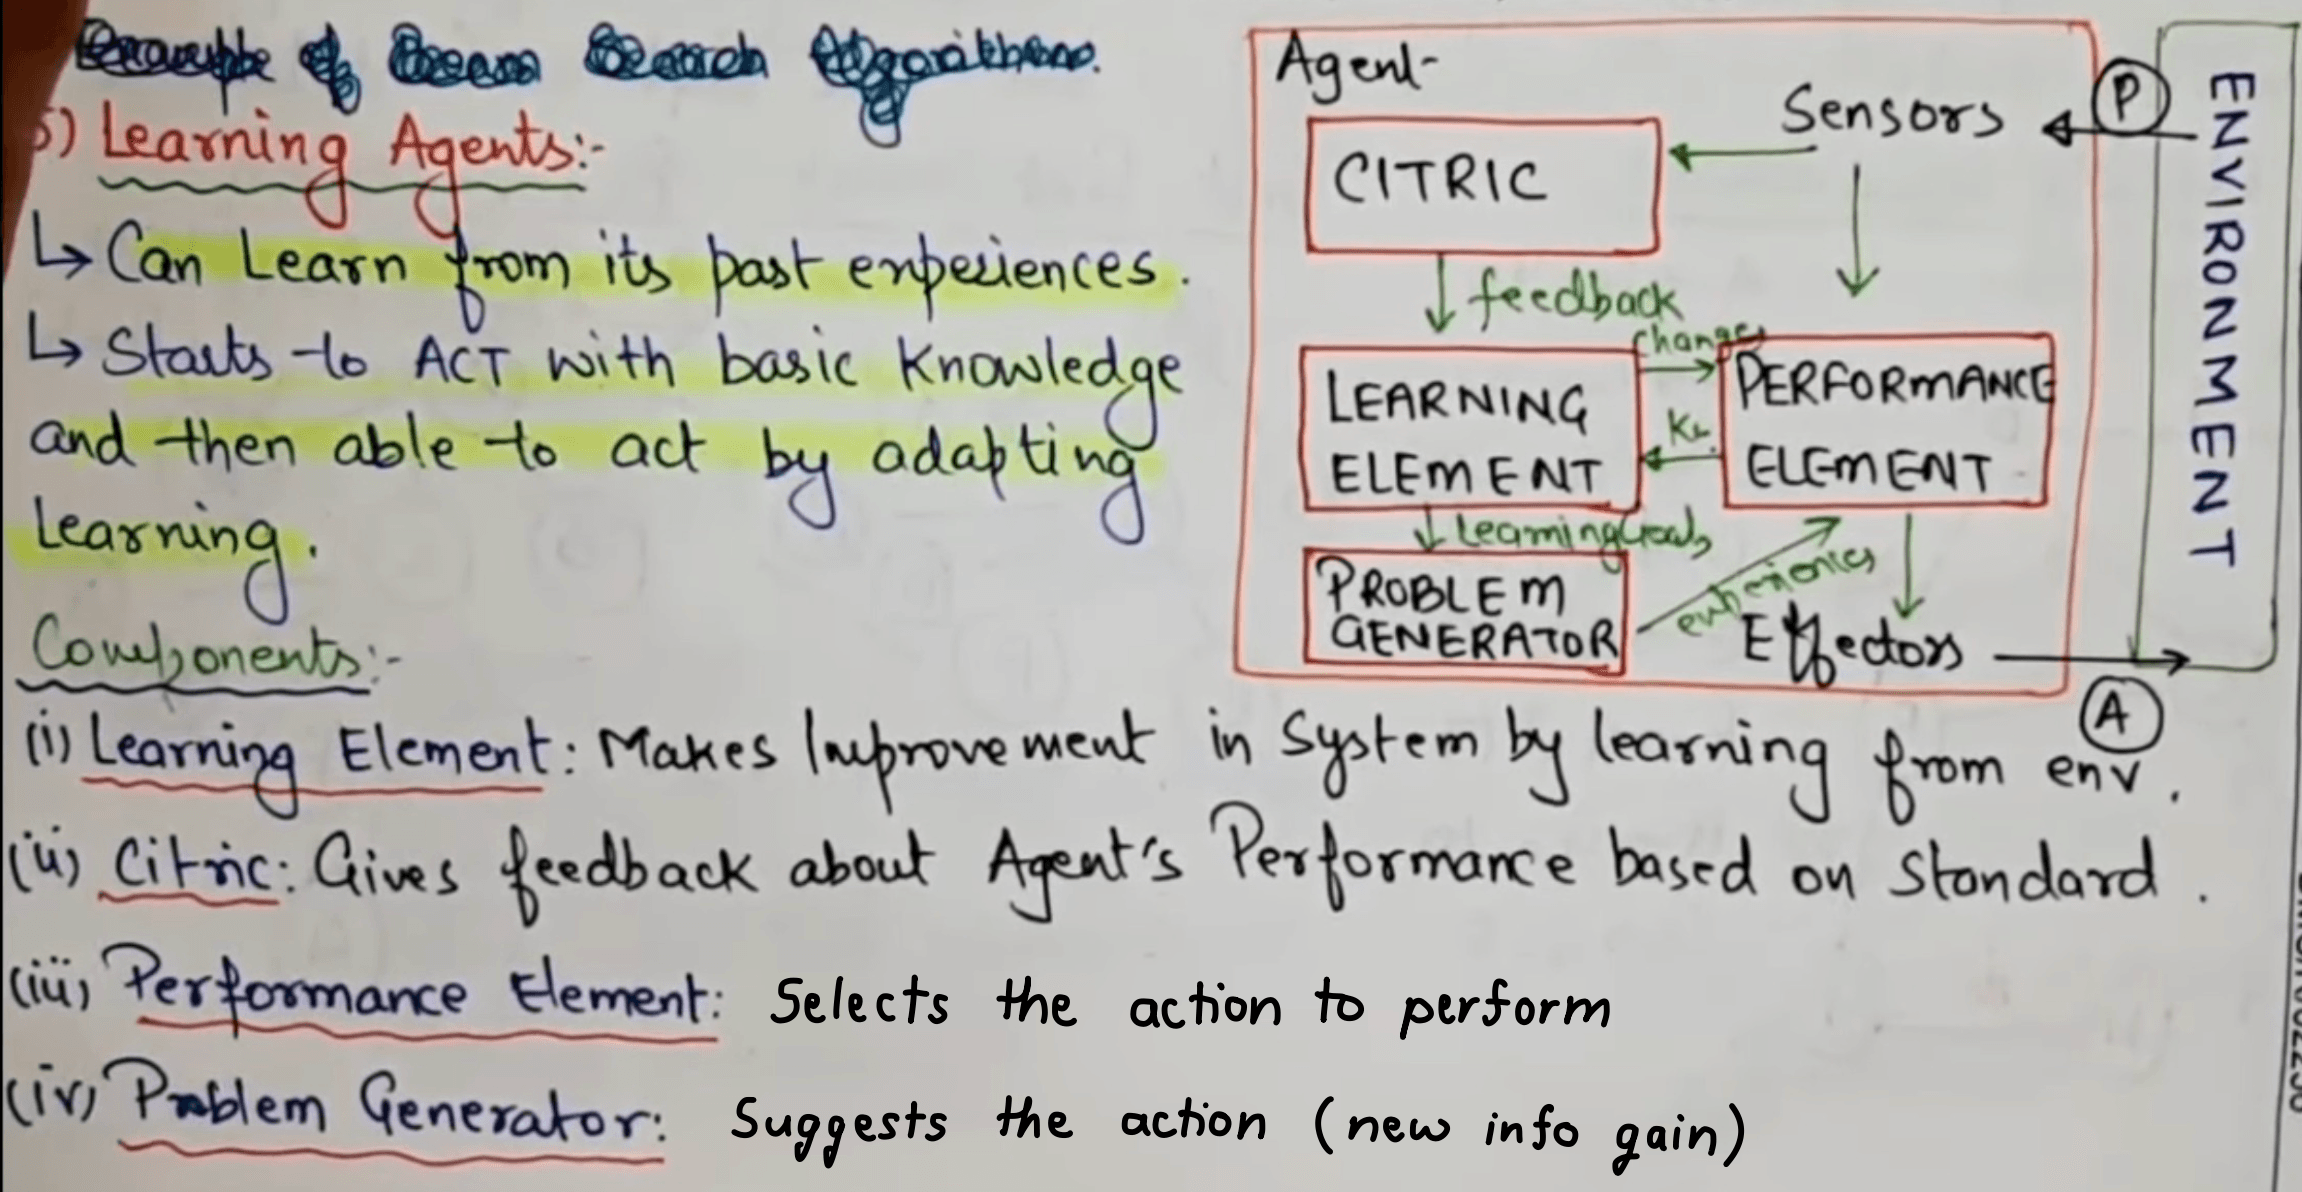 5) Learning Agents:-
↳ Can Learn from its past enperiences.
↳ Starts to ACT with basic Knowledge
and then able to act by adapting
Learning.
Components:-
(i) Learning Element: Makes Improvement in System by learning from env.
(ii) Citric: Gives feedback about Agent's Performance based on Standard.
(iii) Performance Element: Selects the action to perform
(iv) Problem Generator: Suggests the action (new info gain)
Agent-
Sensors
P
ENVIRONMENT
CITRIC
feedback
changes
LEARNING
ELEMENT
PERFORMANCE
ELEMENT
Learning Goals
PROBLEM
GENERATOR
Effectors
A